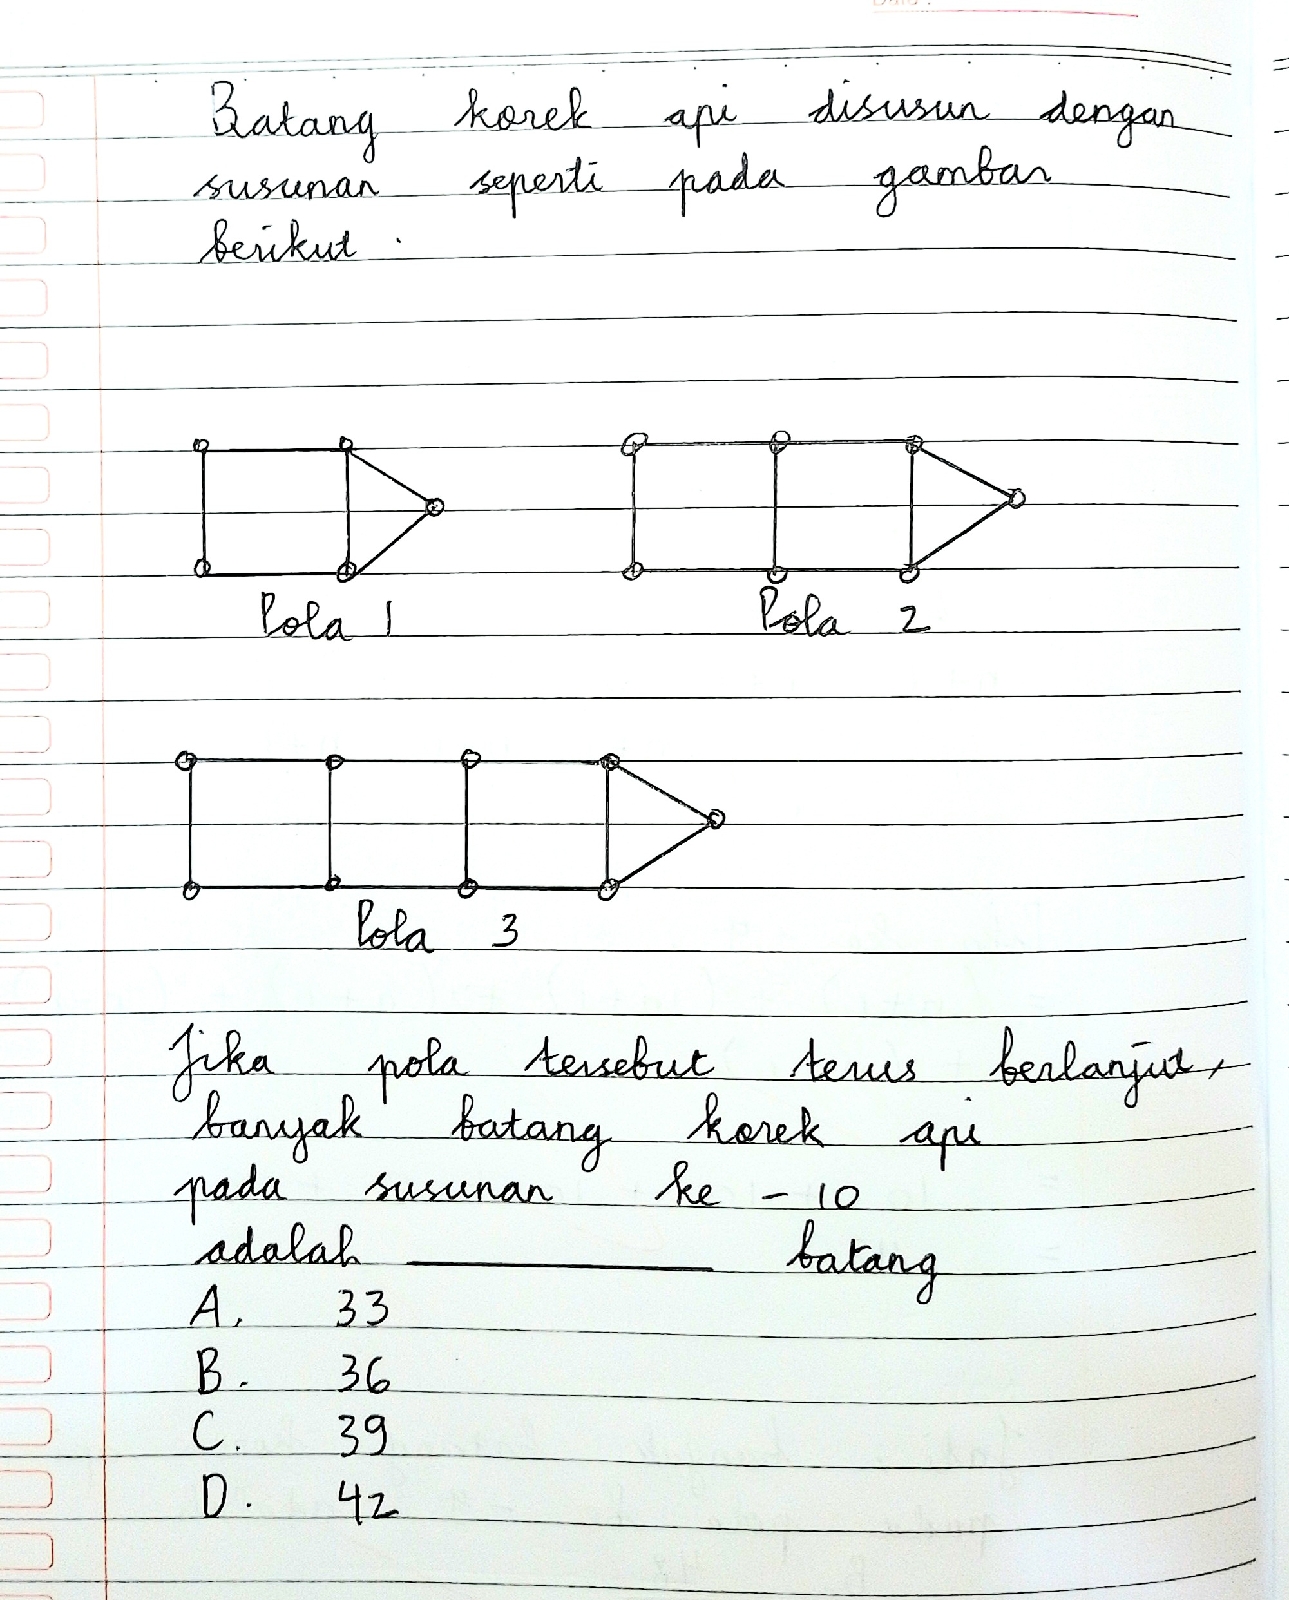 Batang korek api disusun dengan
susunan seperti pada gambar
berikut .
Pola 1 Pola 2
Pola 3
Jika pola tersebut terus berlanjut,
banyak batang korek api
pada susunan ke - 10
adalah ____________ batang
A. 33
B. 36
C. 39
D. 42